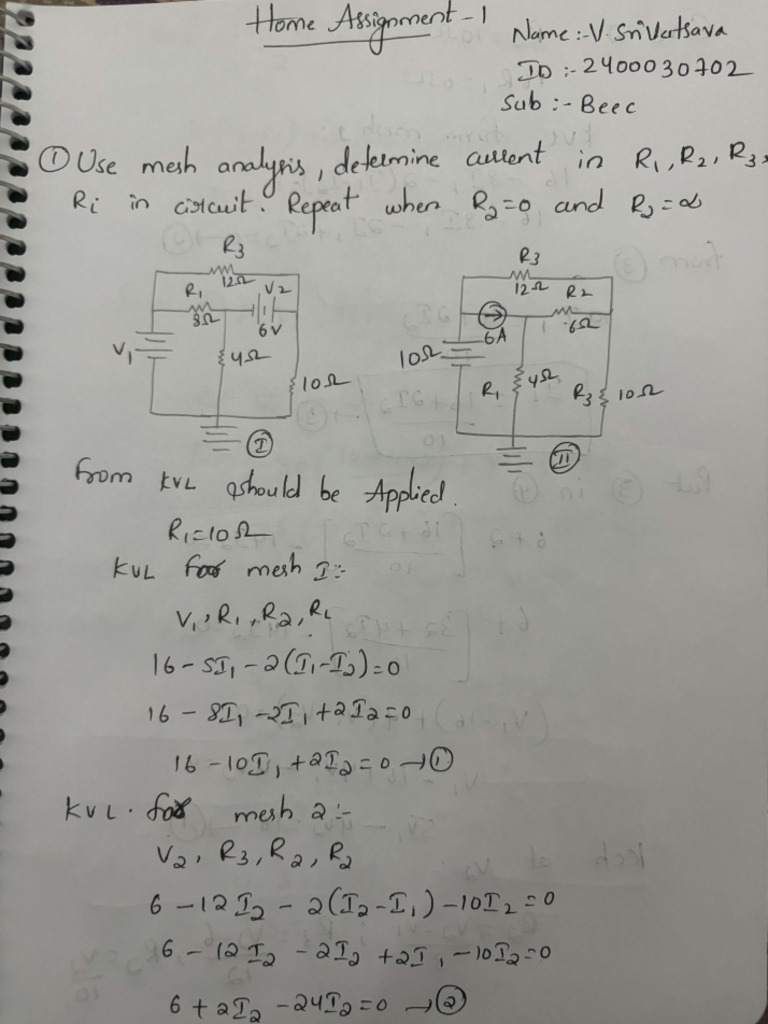 Home Assignment - 1
Name :- V. Sri Vatsava
ID :- 2400030702
Sub :- Beec
① Use mesh analysis, determine current in R₁, R₂, R₃,
Ri in circuit. Repeat when R₂=0 and R₂=∝
R₃
12Ω
R₁
8Ω
V₂
6V
V₁
4Ω
10Ω
Ⅰ
R₃
12Ω
R₂
6Ω
6A
10Ω
R₁
4Ω
R₃
10Ω
Ⅱ
from KVL should be Applied.
R₁=10Ω
KVL for mesh I:-
V₁, R₁, R₂, RL
16 - 5I₁ - 2(I₁-I₂)=0
16 - 8I₁ - 2I₁ + 2I₂=0
16 - 10I₁ + 2I₂ = 0 → ①
KVL. for mesh 2:-
V₂, R₃, R₂, R₂
6 - 12I₂ - 2(I₂-I₁) - 10I₂ = 0
6 - 12I₂ - 2I₂ + 2I₁ - 10I₂=0
6 + 2I₂ - 24I₂=0 → ②